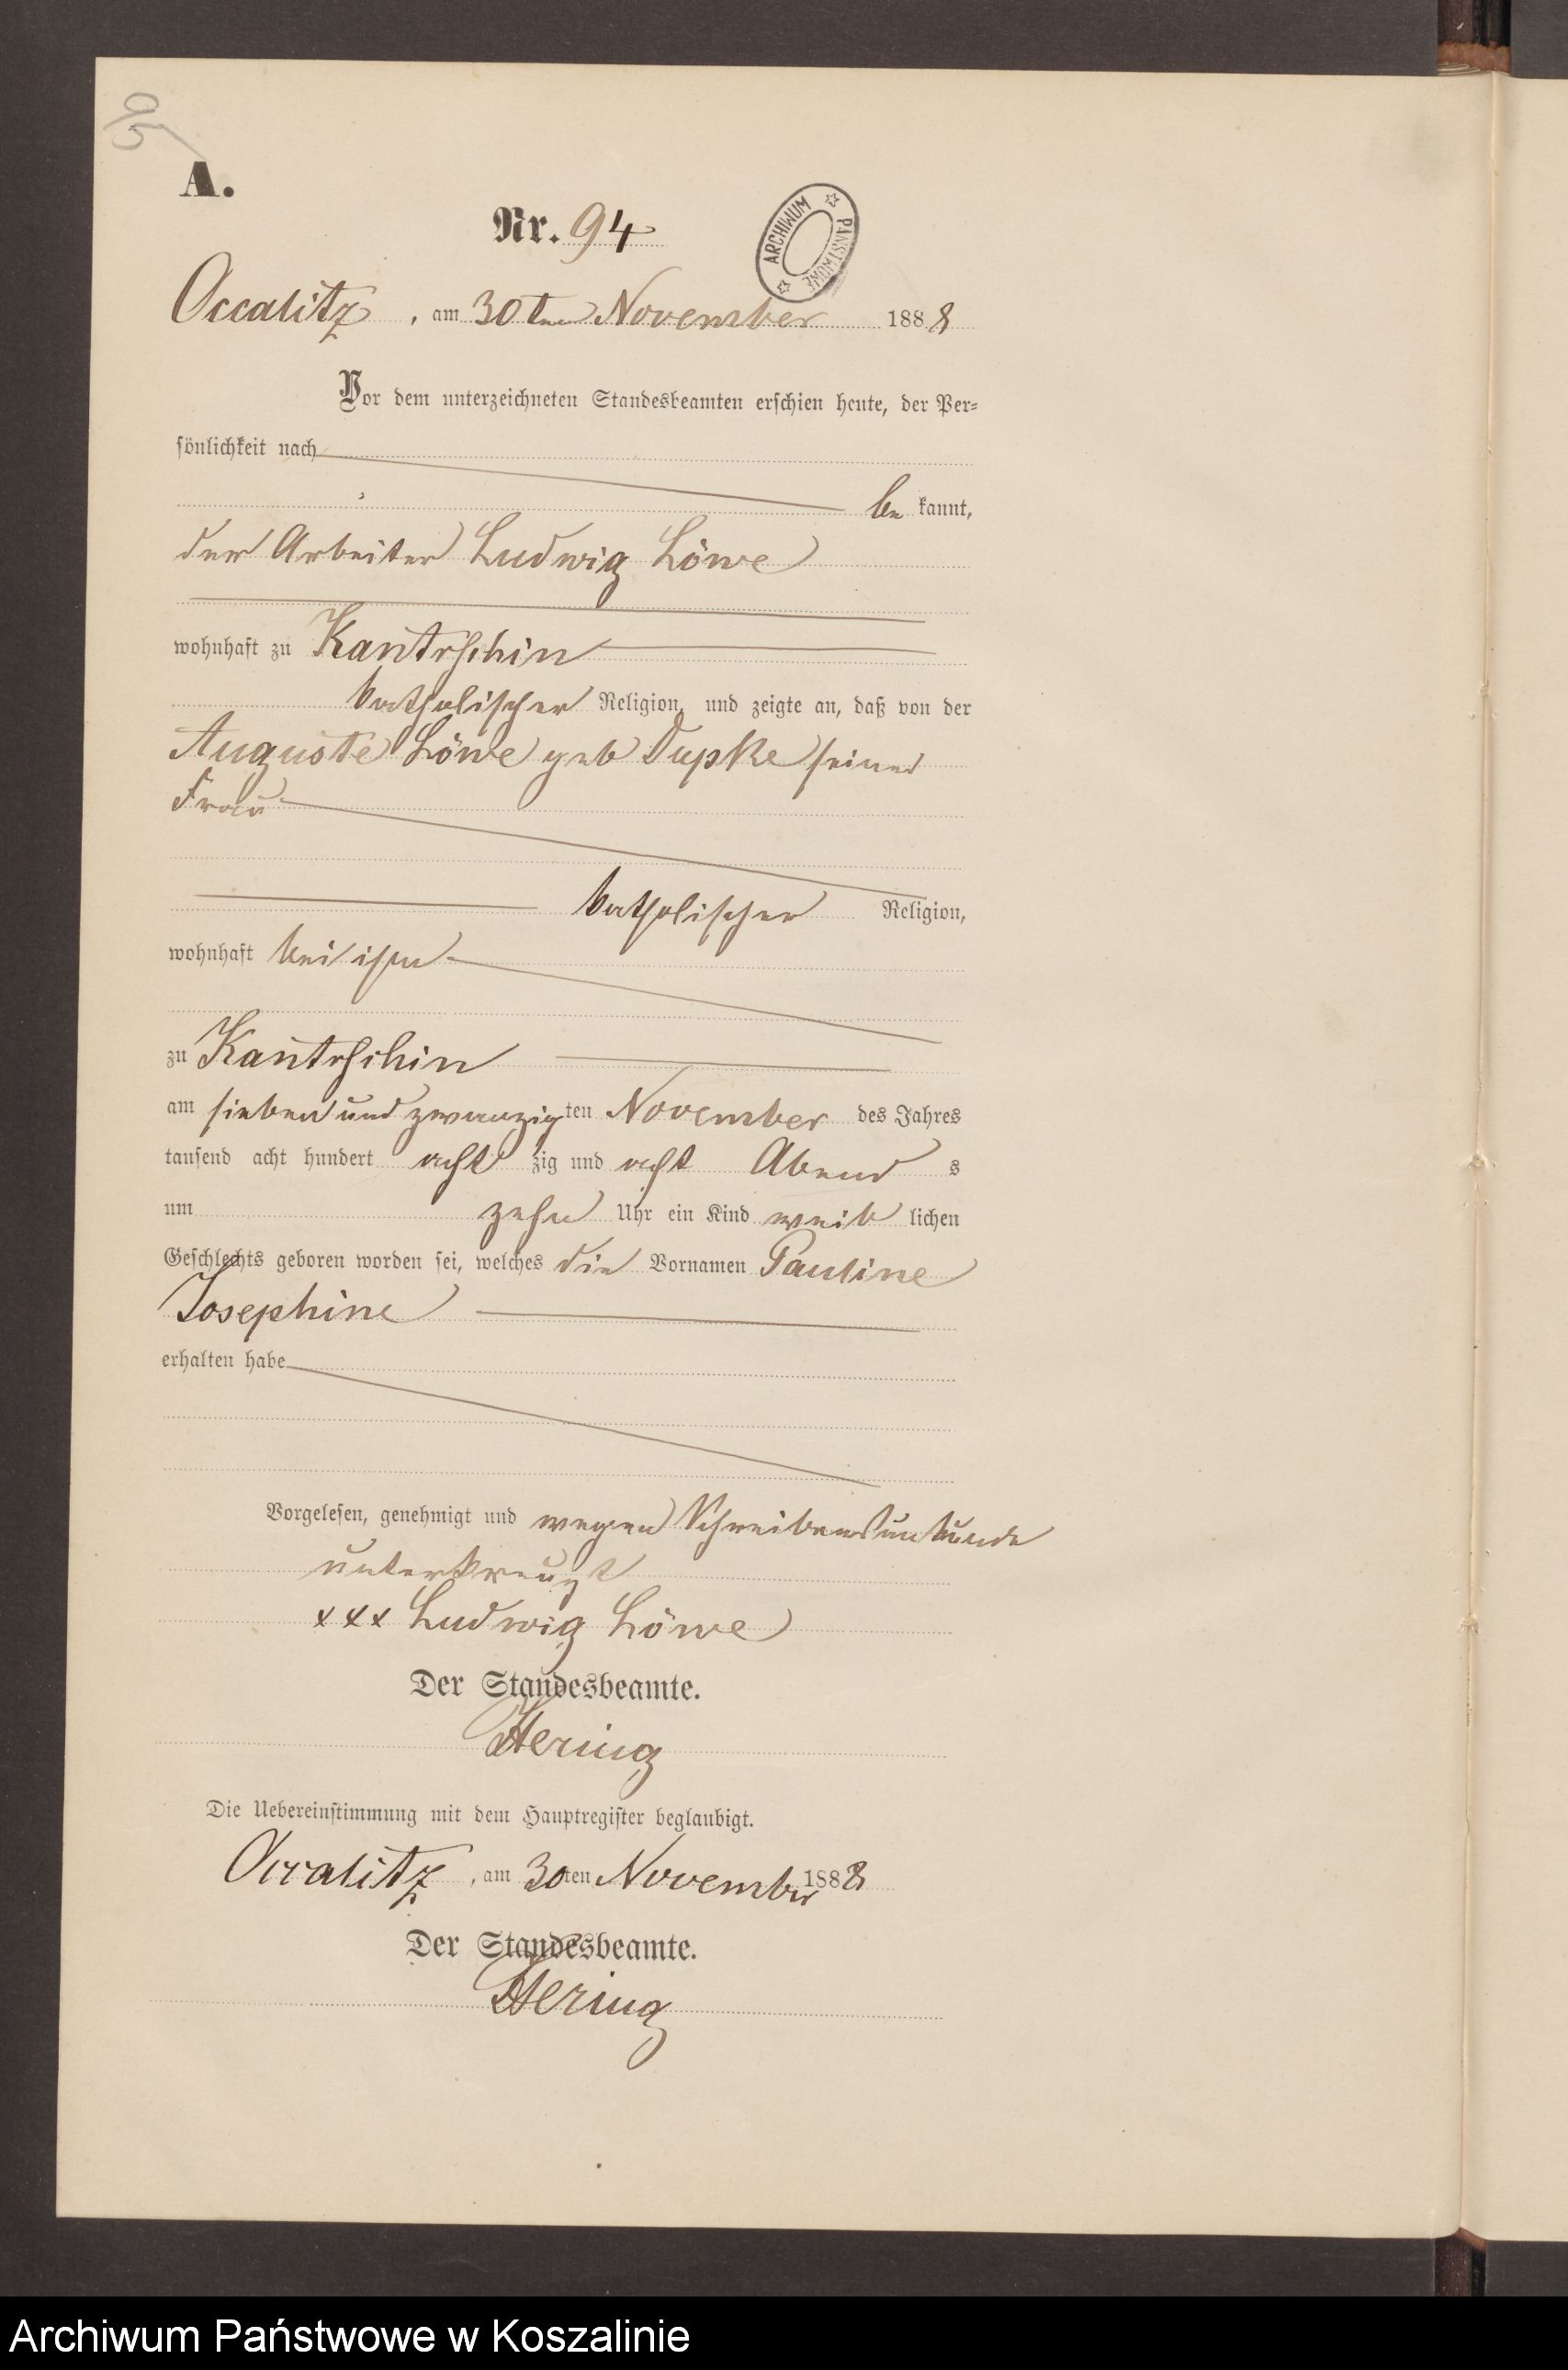 95
A.
Nr. 94
ARCHIWUM PAŃSTWOWE
Occalitz, am 30ten November 1888
Vor dem unterzeichneten Standesbeamten erschien heute, der Per=
sönlichkeit nach
be kannt,
der Arbeiter Ludwig Löwe
wohnhaft zu Kantrschin
katholischer Religion, und zeigte an, daß von der
Auguste Löwe geb Dupke seiner
Frau
katholischer Religion,
wohnhaft bei ihm
zu Kantrschin
am sieben und zwanzigten November des Jahres
tausend acht hundert acht zig und acht Abend s
um zehn Uhr ein Kind weib lichen
Geschlechts geboren worden sei, welches die Vornamen Pauline
Josephine
erhalten habe
Vorgelesen, genehmigt und wegen Schreibensunkunde
unterkreuzt
xxx Ludwig Löwe
Der Standesbeamte.
Hering
Die Uebereinstimmung mit dem Hauptregister beglaubigt.
Occalitz, am 30ten November 1888
Der Standesbeamte.
Hering
Archiwum Państwowe w Koszalinie